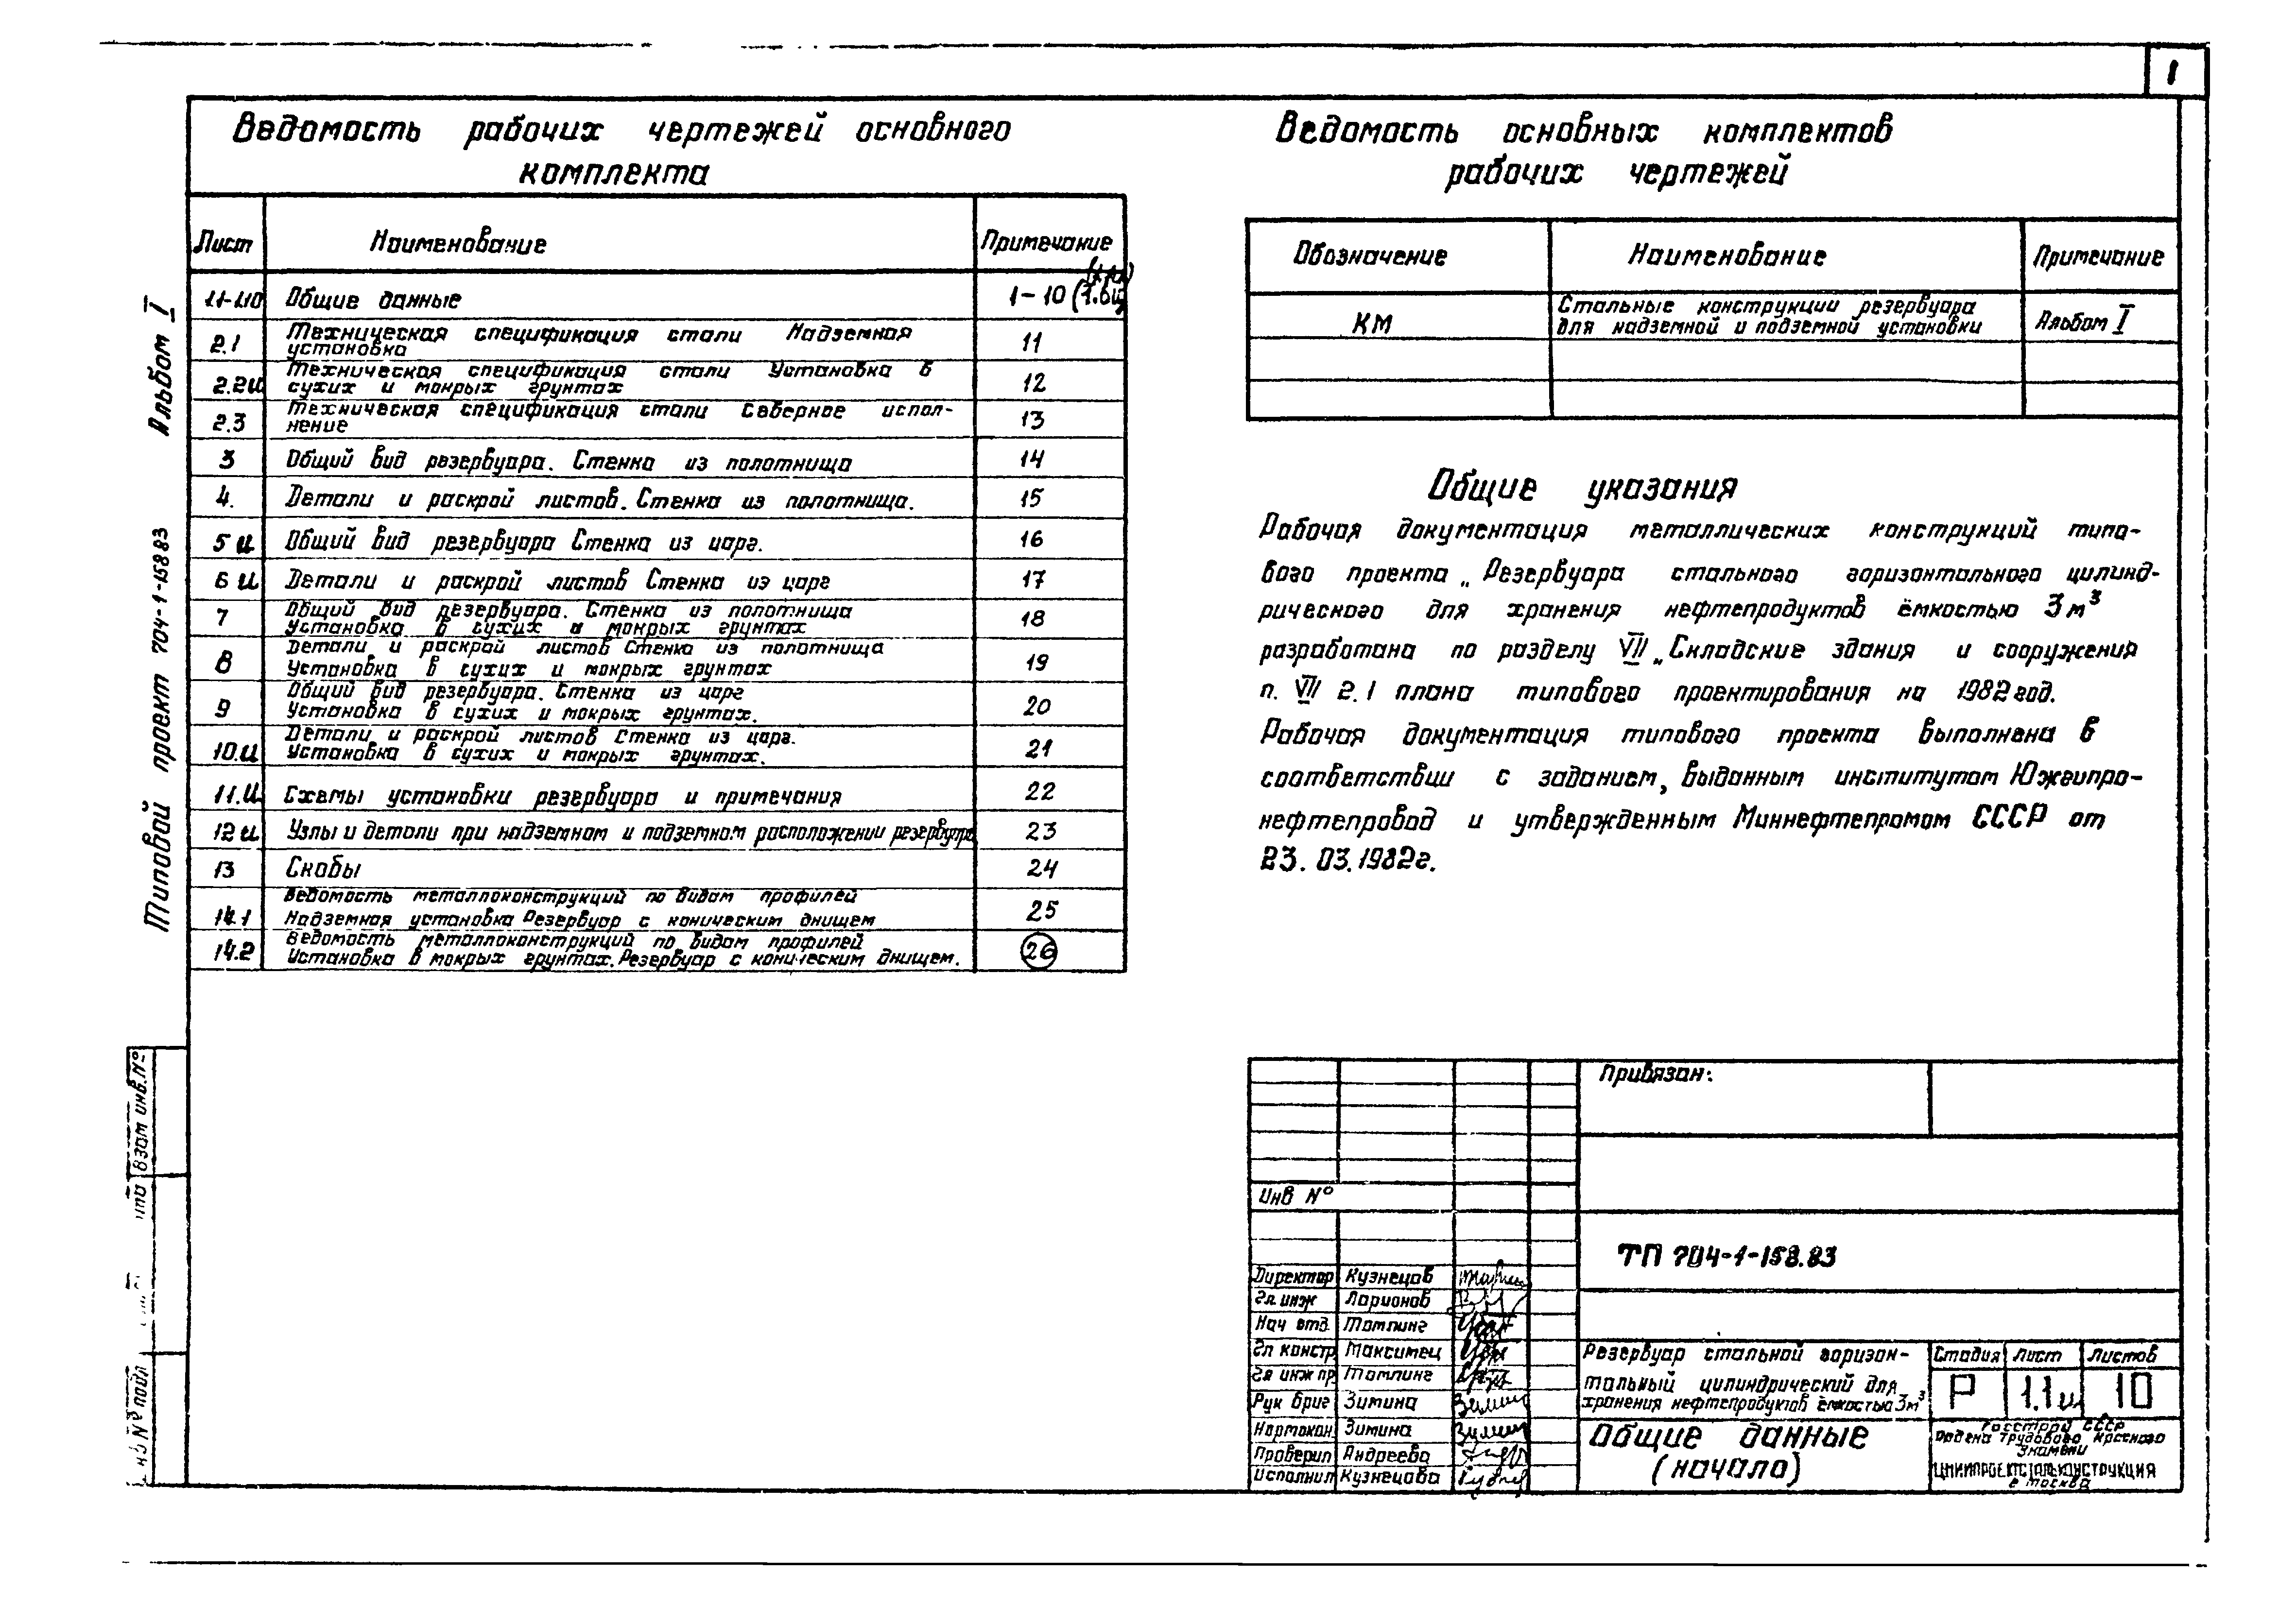 1
Ведомость рабочих чертежей основного
комплекта
Лист Наименование Примечание
1.1-1.10 Общие данные 1-10
2.1 Техническая спецификация стали Надземная
установка 11
2.2и Техническая спецификация стали Установка в
сухих и мокрых грунтах 12
2.3 Техническая спецификация стали Северное испол-
нение 13
3 Общий вид резервуара. Стенка из полотнища 14
4. Детали и раскрой листов. Стенка из полотнища. 15
5и Общий вид резервуара Стенка из царг. 16
6и Детали и раскрой листов Стенка из царг 17
7 Общий вид резервуара. Стенка из полотнища
Установка в сухих и мокрых грунтах 18
8 Детали и раскрой листов Стенка из полотнища
Установка в сухих и мокрых грунтах 19
9 Общий вид резервуара. Стенка из царг
Установка в сухих и мокрых грунтах. 20
10.и Детали и раскрой листов Стенка из царг.
Установка в сухих и мокрых грунтах. 21
11.и Схемы установки резервуара и примечания 22
12и Узлы и детали при надземном и подземном расположении резервуара 23
13 Скобы 24
14.1 Ведомость металлоконструкций по видам профилей
Надземная установка Резервуар с коническим днищем 25
14.2 Ведомость металлоконструкций по видам профилей
Установка в мокрых грунтах. Резервуар с коническим днищем. 26
Альбом I
Типовой проект 704-1-158 83
Взам инв. №
Инв № подл
Ведомость основных комплектов
рабочих чертежей
Обозначение Наименование Примечание
КМ Стальные конструкции резервуара
для надземной и подземной установки Альбом I
Общие указания
Рабочая документация металлических конструкций типо-
вого проекта „Резервуара стального горизонтального цилинд-
рического для хранения нефтепродуктов ёмкостью 3м³
разработана по разделу VII „Складские здания и сооружения
п. VII 2.1 плана типового проектирования на 1982год.
Рабочая документация типового проекта выполнена в
соответствии с заданием, выданным институтом Южгипро-
нефтепровод и утвержденным Миннефтепромом СССР от
23. 03.1982г.
Привязан:
Инв №
ТП 704-1-158.83
Директор Кузнецов
Гл инж Ларионов
Нач отд. Томлинг
Гл констр Максимец
Гл инж пр. Томлинг
Рук бриг Зимина
Нормокон. Зимина
Проверил Андреева
Исполнил Кузнецова
Резервуар стальной горизон-
тальный цилиндрический для
хранения нефтепродуктов ёмкостью 3м³
Стадия Лист Листов
Р 1.1и 10
Общие данные
(начало)
Госстрой СССР
Ордена Трудового Красного
Знамени
ЦНИИПРОЕКТСТАЛЬКОНСТРУКЦИЯ
г Москва